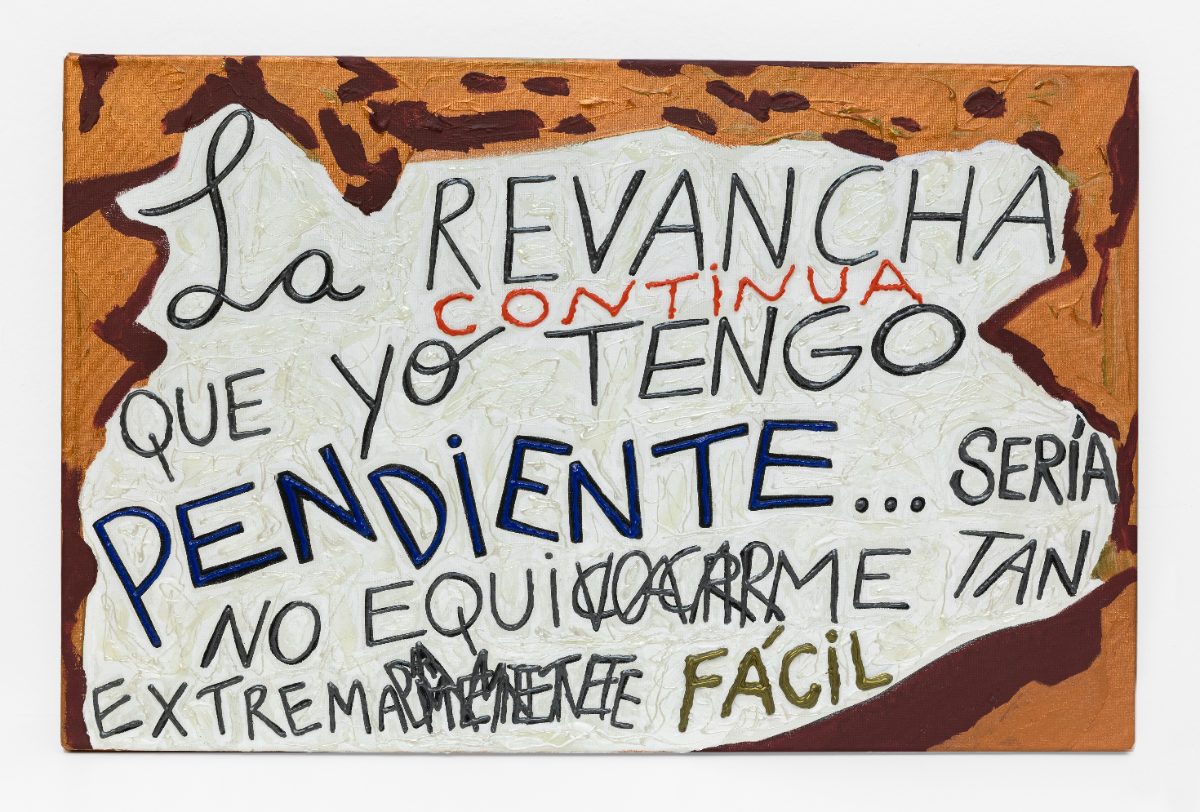 La REVANCHA
CONTINUA
QUE YO TENGO
PENDIENTE... SERÍA
NO EQUIVOCARME TAN
EXTREMADAMENTE FÁCIL